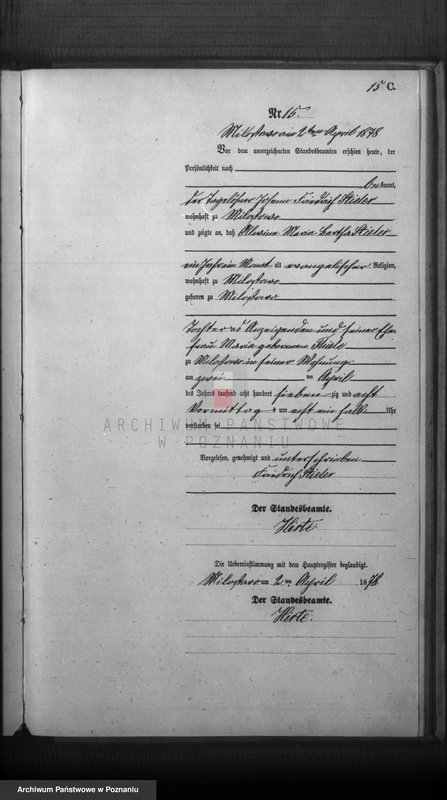 15 C.
Nr. 15.
Milostowo am 2ten April 1878
Vor dem unterzeichneten Standesbeamten erschien heute, der
Persönlichkeit nach
bekannt,
der Tagelöhner Johann Friedrich Stieler
wohnhaft zu Milostowo
und zeigte an, daß Maria Bertha Stieler
ein Jahr ein Monat alt evangelischer Religion,
wohnhaft zu Milostowo
geboren zu Milostowo
Tochter des Anzeigenden und seiner Ehe
frau Maria geborenen
zu Milostowo in seiner Wohnung
am zwei ten April
des Jahres tausend acht hundert sieben zig und acht
Vormittags um acht ein halb Uhr
verstorben sei
ARCHIWUM PAŃSTWOWE
W POZNANIU
Vorgelesen, genehmigt und unterschrieben
Friedrich Stieler
Der Standesbeamte.
Hirte.
Die Uebereinstimmung mit dem Hauptregister beglaubigt.
Milostowo am 2ten April 1878
Der Standesbeamte.
Hirte.
Archiwum Państwowe w Poznaniu